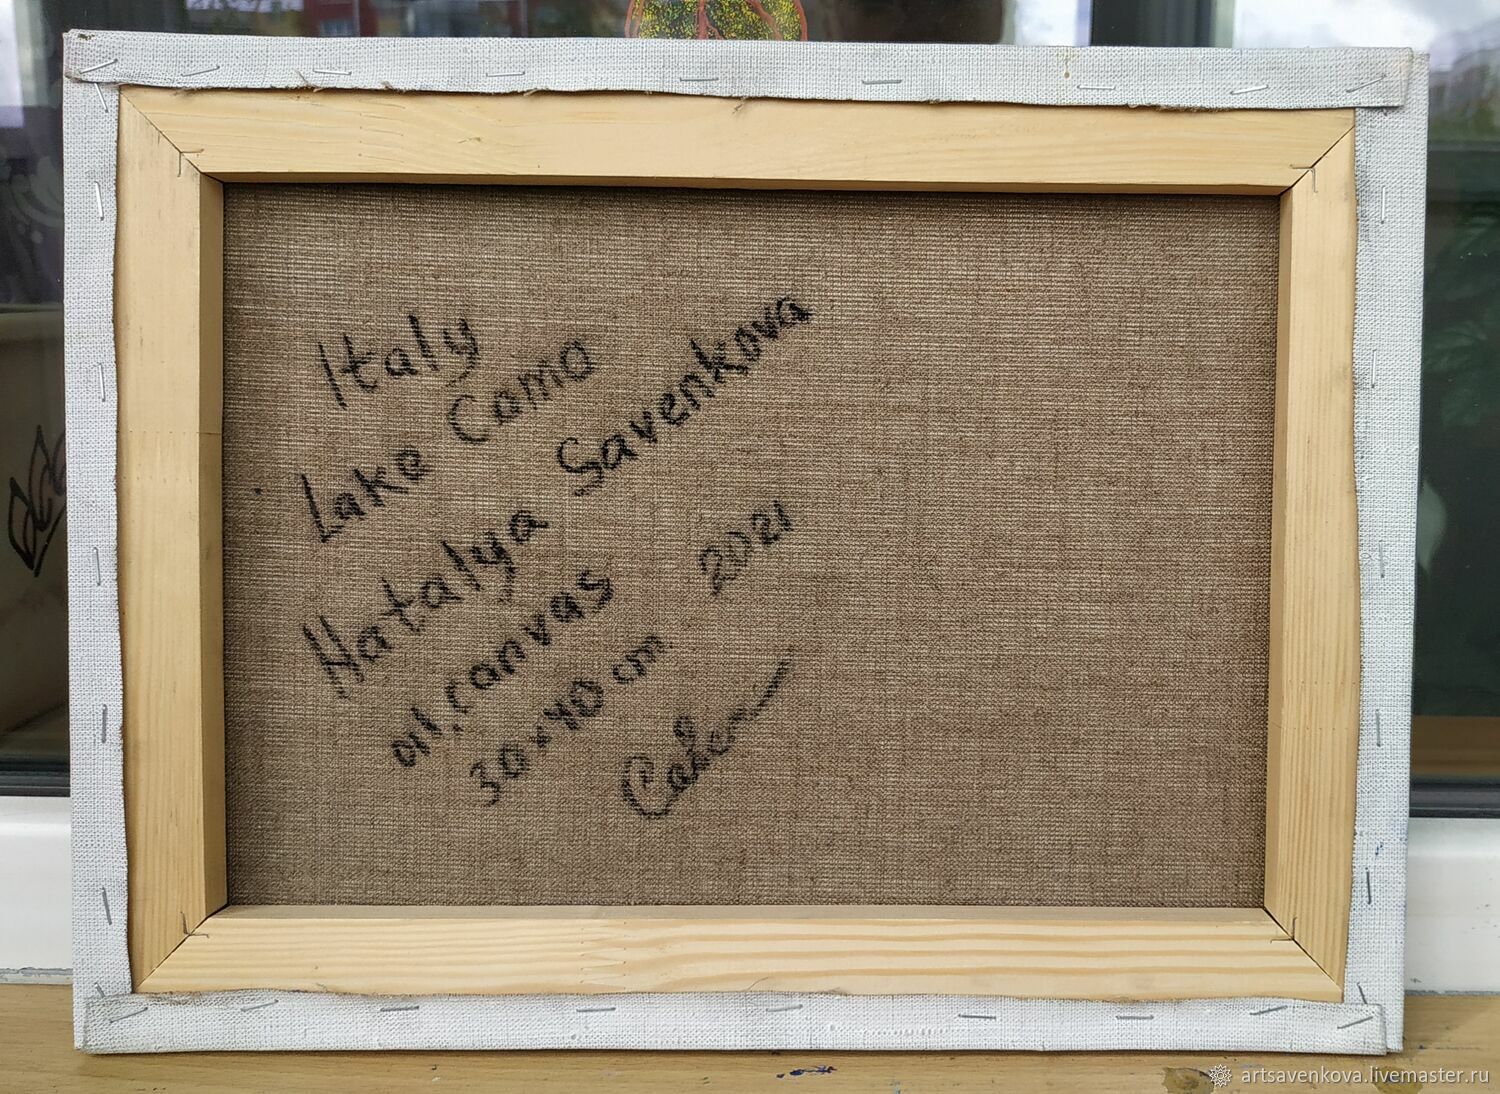 Italy
Lake Como
Natalya Savenkova
oil, canvas 2021
30×40 cm
Савен
artsavenkova.livemaster.ru